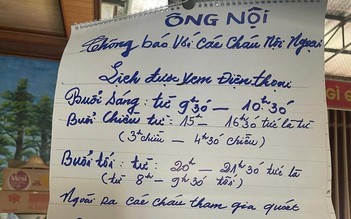 ÔNG NỘI
Thông báo Với Các Cháu Nội Ngoại
Lịch được xem Điện thoại
Buổi Sáng: từ 9h30 – 10h30
Buổi Chiều từ: 15h – 16h30 tức là từ
(3h chiều – 4h30 chiều)
Buổi tối: từ: 20h – 21h30 tức là
(từ 8h – 9h30 tối)
Ngoài ra các cháu tham gia quét